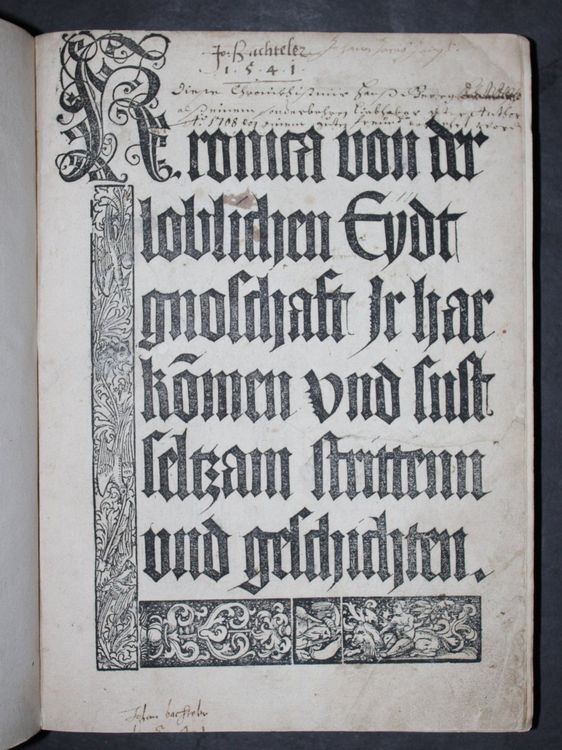 Jo: Bachteler
1 · 5 · 4 · 1 ·
1708
Kronica von der
loblichen Eydt
gnoschaft Jr har
kōmen vnd sust
seltzam strittenn
und geschichten.
Johan bachteler